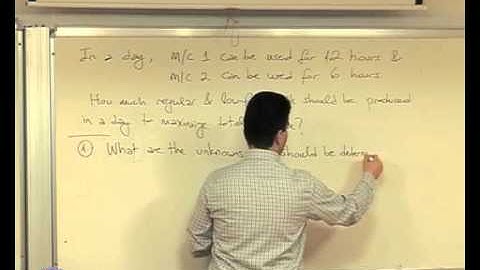 In a day, M/C 1 can be used for 12 hours &
M/C 2 can be used for 6 hours
How much regular & lowf should be produced
in a day to maximize total ?
① What are the unknowns should be determ